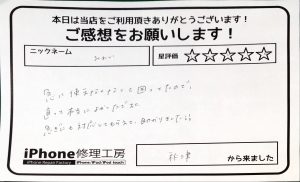 本日は当店をご利用頂きありがとうございます!
ご感想をお願いします!
ニックネーム
星評価 ☆☆☆☆☆
急に使えなくなって困ってたので、
直って本当によかったです。
急ぎにも対応してもらえて、助かりました。
iPhone修理工房
iPhone Repair Factory
iPhone/iPad/iPod touch
から来ました